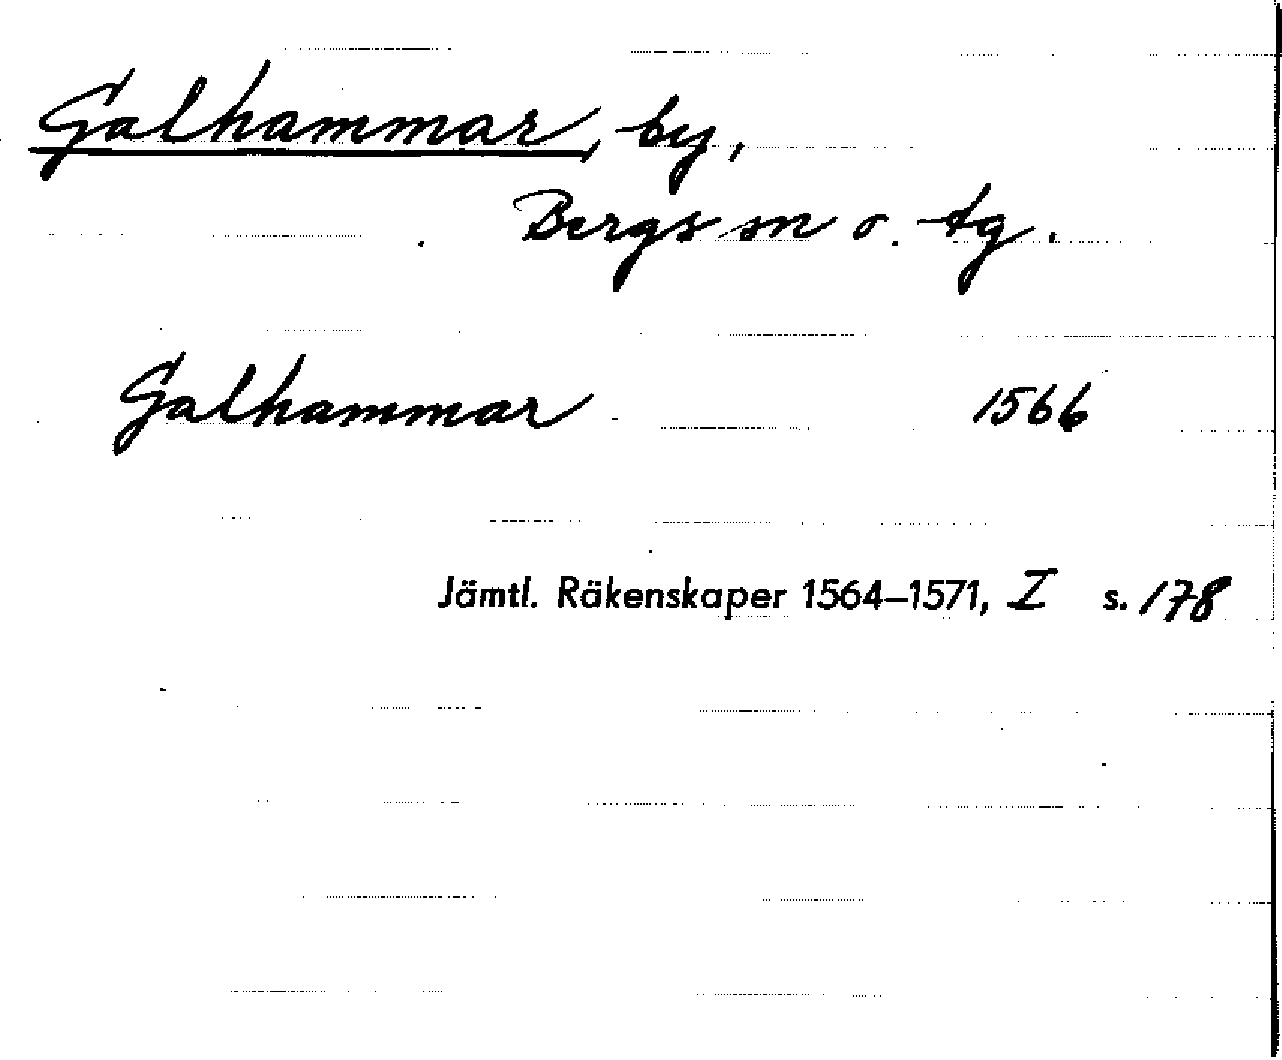 Galhammar, by,
Bergs sn o. tg.
Galhammar 1566
Jämtl. Räkenskaper 1564–1571, I s. 178